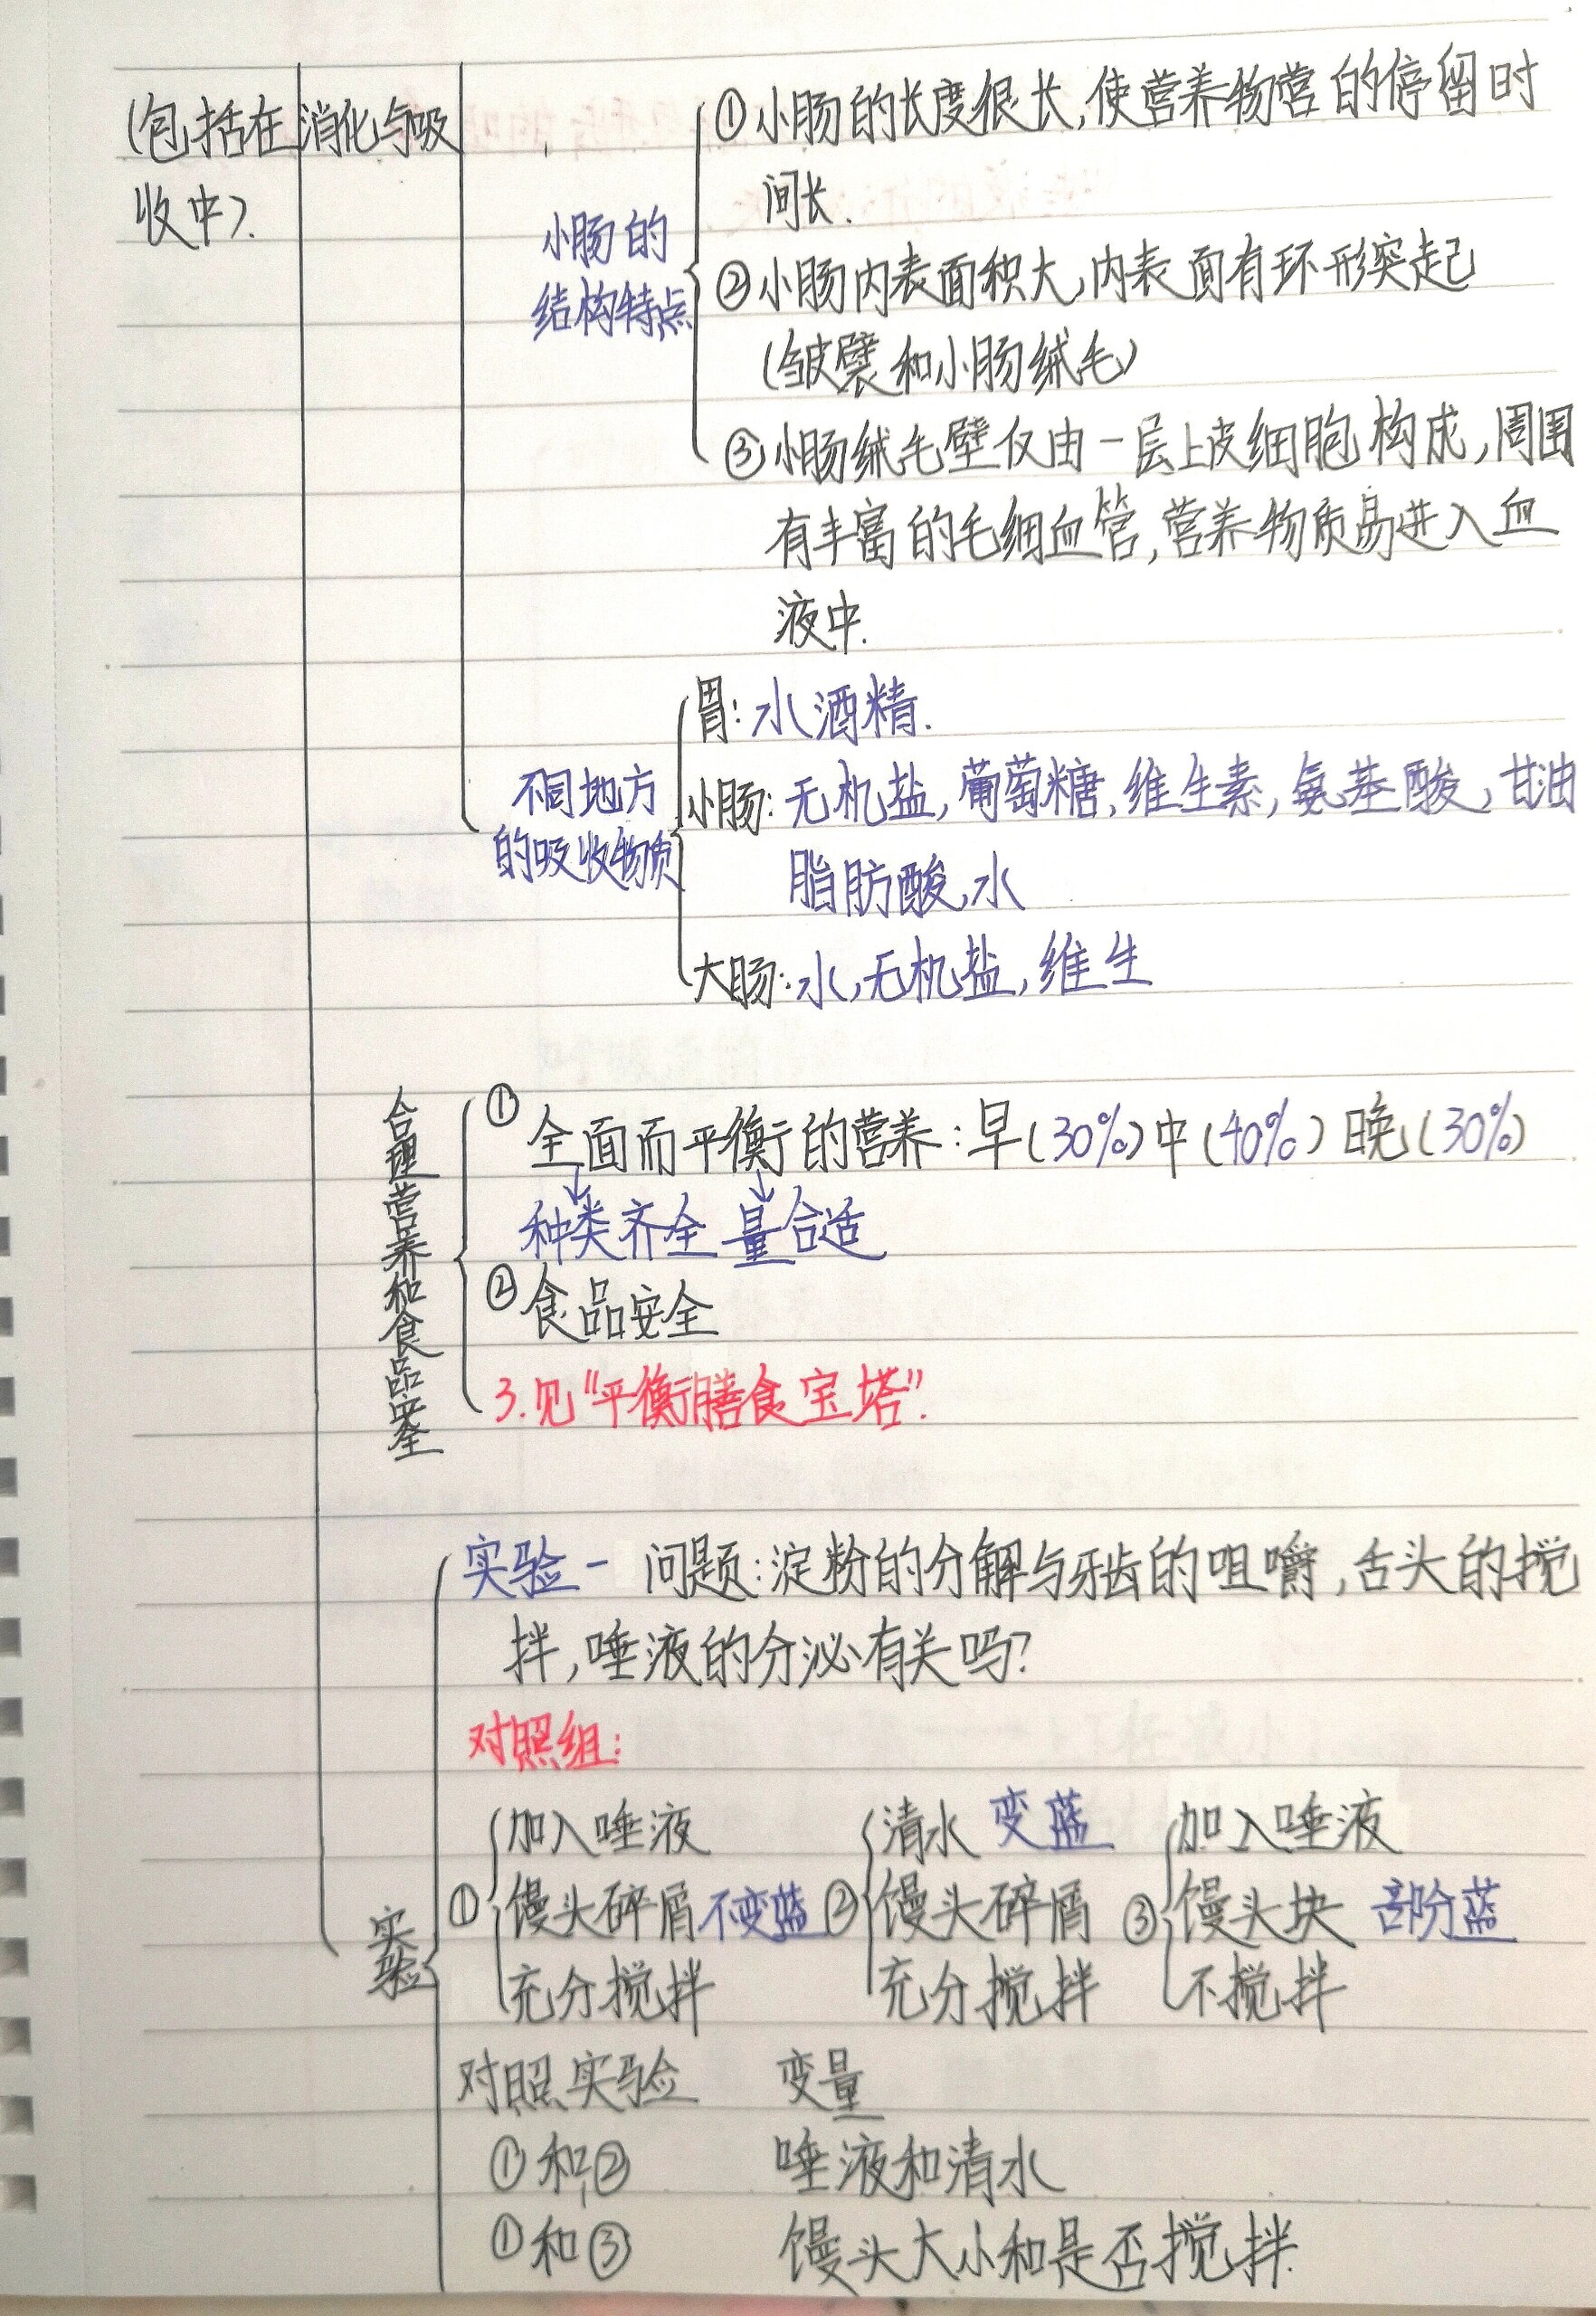 (包括在消化与吸
收中).
小肠的
结构特点
①小肠的长度很长,使营养物营的停留时
间长.
②小肠内表面积大,内表面有环形突起
(皱襞和小肠绒毛)
③小肠绒毛壁仅由一层上皮细胞构成,周围
有丰富的毛细血管,营养物质易进入血
液中.
不同地方
的吸收物质
胃:水酒精.
小肠:无机盐,葡萄糖,维生素,氨基酸,甘油
脂肪酸,水
大肠:水,无机盐,维生
合理营养和食品安全
①全面而平衡的营养:早(30%)中(40%)晚(30%)
种类齐全 量合适
②食品安全
3.见“平衡膳食宝塔”.
实验
实验一 问题:淀粉的分解与牙齿的咀嚼,舌头的搅
拌,唾液的分泌有关吗?
对照组:
加入唾液 清水 变蓝 加入唾液
①馒头碎屑不变蓝②馒头碎屑 ③馒头块 部分蓝
充分搅拌 充分搅拌 不搅拌
对照实验 变量
①和② 唾液和清水
①和③ 馒头大小和是否搅拌.